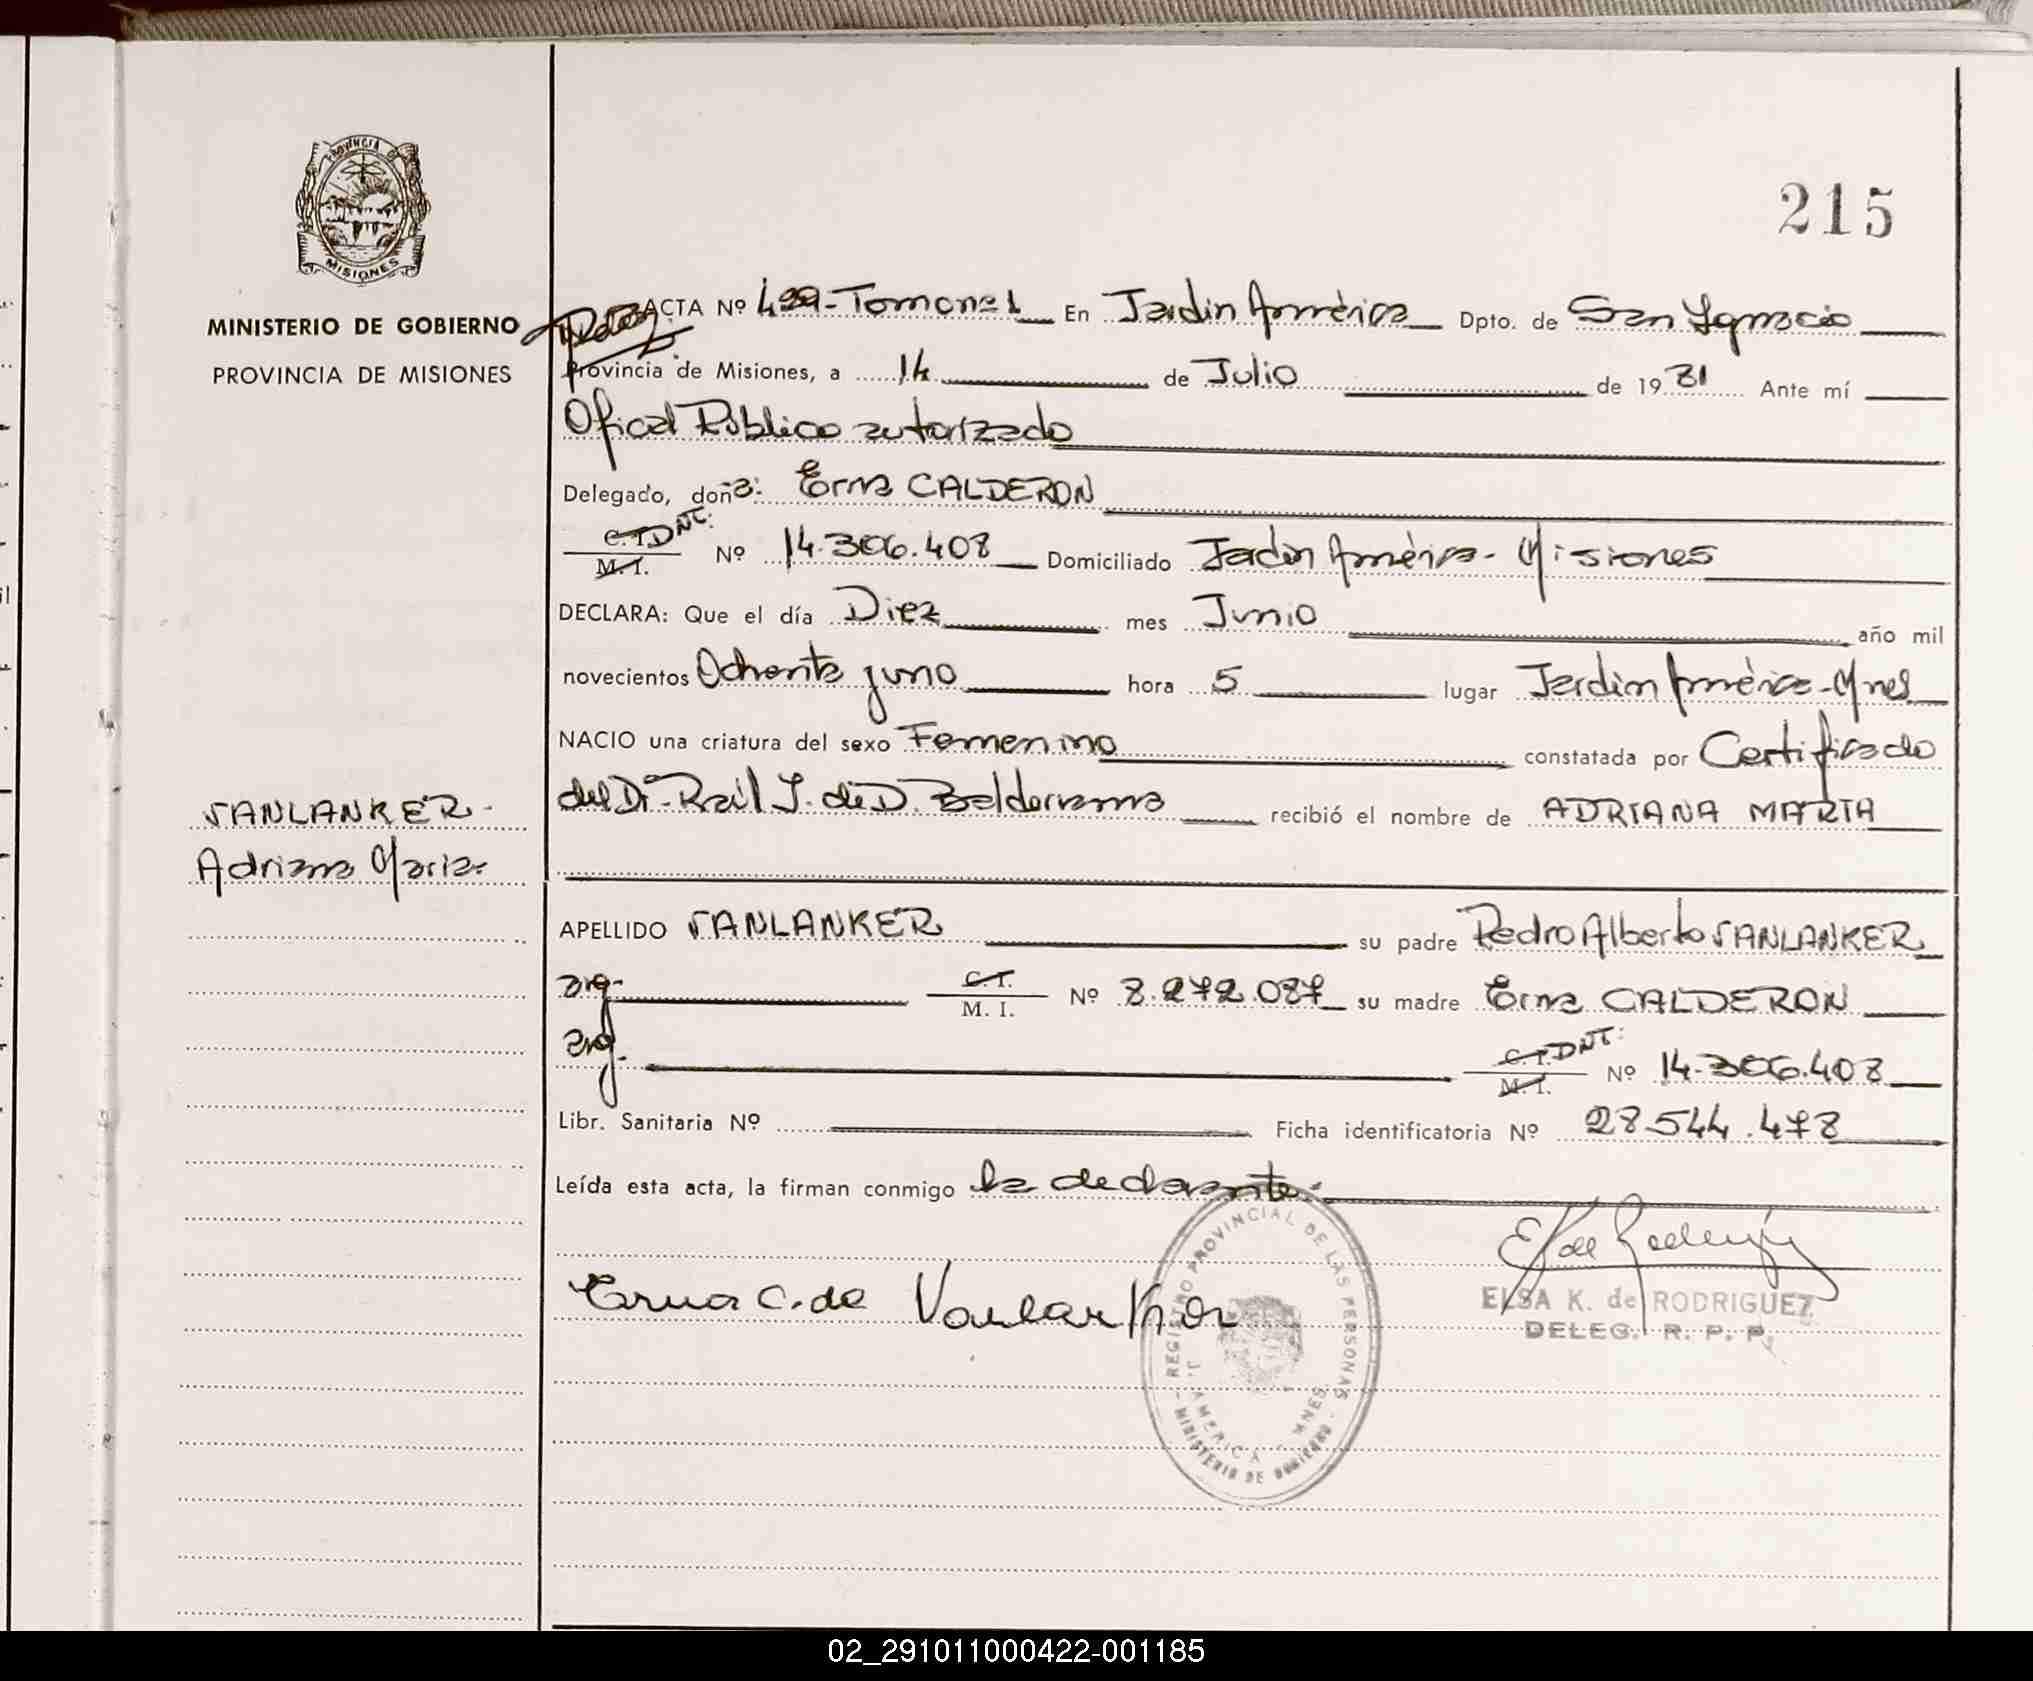 PROVINCIA DE
MISIONES
MINISTERIO DE GOBIERNO
PROVINCIA DE MISIONES
VANLANKER.
Adriana María.
215
ACTA Nº 429-Tomo nº 1 En Jardín América Dpto. de San Ignacio
Provincia de Misiones, a 14 de Julio de 1981 Ante mí
Oficial Público autorizado
Delegado, doña: Erna CALDERON
C.I. DNI: M. I. Nº 14.306.408 Domiciliado Jardín América - Misiones
DECLARA: Que el día Diez mes Junio año mil
novecientos Ochenta y uno hora 5 lugar Jardín América-Mnes
NACIO una criatura del sexo Femenino constatada por Certificado
del Dr. Raúl J. de D. Balderrama recibió el nombre de ADRIANA MARIA
APELLIDO VANLANKER su padre Pedro Alberto VANLANKER
arg. C.I. M. I. Nº 8.272.087 su madre Erna CALDERON
arg. C.I. DNI: M. I. Nº 14.306.408
Libr. Sanitaria Nº Ficha identificatoria Nº 28.544.478
Leída esta acta, la firman conmigo la declarante.
Erna C. de Vanlanker
ELSA K. de RODRIGUEZ
DELEG. R. P. P.
REGISTRO PROVINCIAL DE LAS PERSONAS
J. AMERICA - MNES
MINISTERIO DE GOBIERNO
02_291011000422-001185